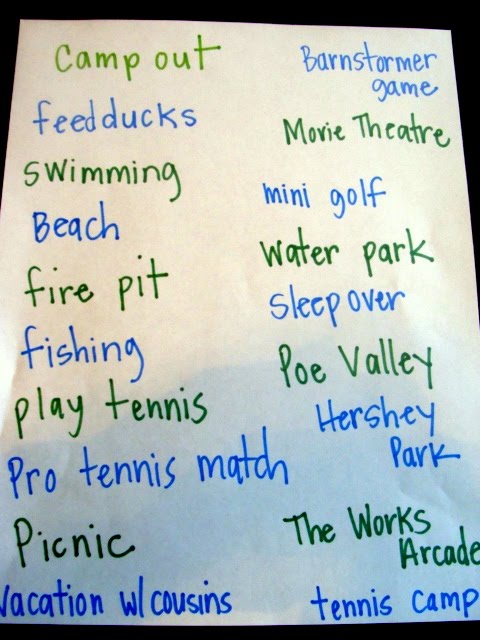 Camp out
feed ducks
swimming
Beach
fire pit
fishing
play tennis
Pro tennis match
Picnic
Vacation w/ cousins
Barnstormer
game
Movie Theatre
mini golf
water park
sleep over
Poe Valley
Hershey
Park
The Works
Arcade
tennis camp